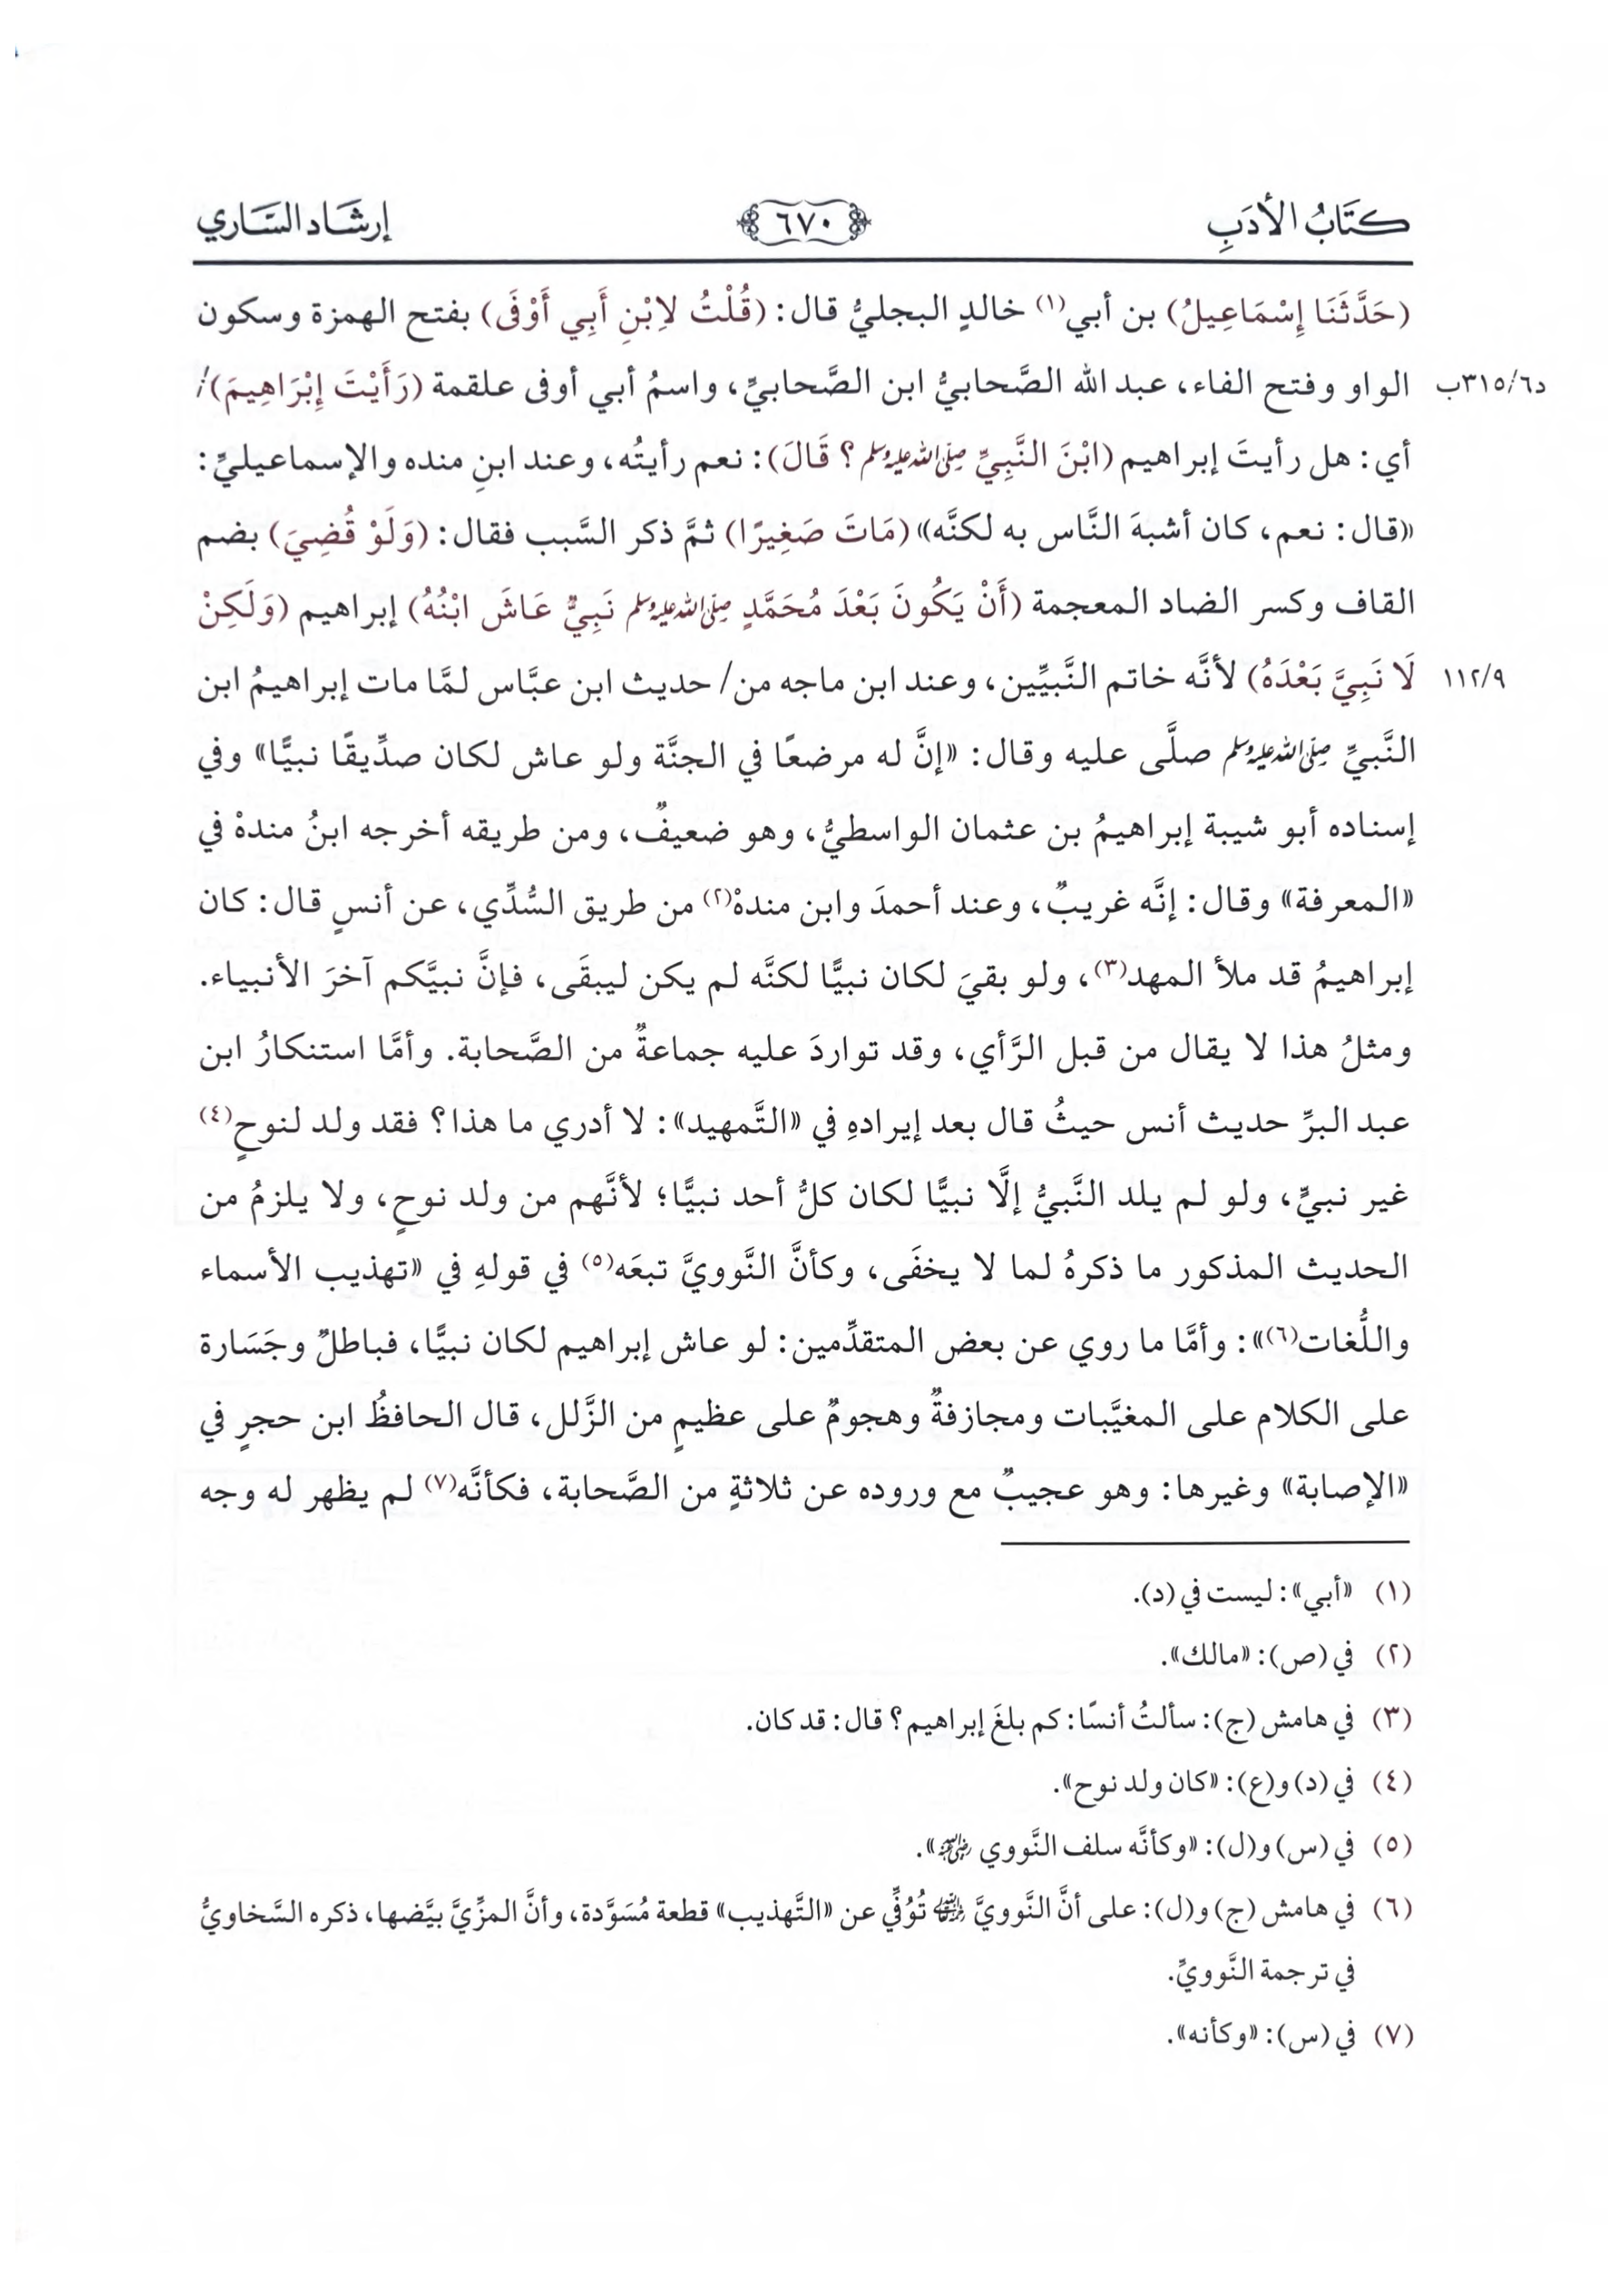 كتَابُ الأدَبِ ٦٧٠ إرشَاد السَّاري
(حَدَّثَنَا إِسْمَاعِيلُ) بن أبي(١) خالدٍ البجليُّ قال: (قُلْتُ لاِبْنِ أَبِي أَوْفَى) بفتح الهمزة وسكون
د٣١٥/٦ب الواو وفتح الفاء، عبد الله الصَّحابيُّ ابن الصَّحابيِّ، واسمُ أبي أوفى علقمة (رَأَيْتَ إِبْرَاهِيمَ)/
أي: هل رأيتَ إبراهيم (ابْنَ النَّبِيِّ صلى الله عليه وسلم؟ قَالَ): نعم رأيتُه، وعند ابنِ منده والإسماعيليِّ:
«قال: نعم، كان أشبهَ النَّاس به لكنَّه» (مَاتَ صَغِيرًا) ثمَّ ذكر السَّبب فقال: (وَلَوْ قُضِيَ) بضم
القاف وكسر الضاد المعجمة (أَنْ يَكُونَ بَعْدَ مُحَمَّدٍ صلى الله عليه وسلم نَبِيٌّ عَاشَ ابْنُهُ) إبراهيم (وَلَكِنْ
١١٢/٩ لَا نَبِيَّ بَعْدَهُ) لأنَّه خاتم النَّبيِّين، وعند ابن ماجه من/ حديث ابن عبَّاس لمَّا مات إبراهيمُ ابن
النَّبيِّ صلى الله عليه وسلم صلَّى عليه وقال: «إنَّ له مرضعًا في الجنَّة ولو عاش لكان صدِّيقًا نبيًّا» وفي
إسناده أبو شيبة إبراهيمُ بن عثمان الواسطيُّ، وهو ضعيفٌ، ومن طريقه أخرجه ابنُ مندهْ في
«المعرفة» وقال: إنَّه غريبٌ، وعند أحمدَ وابن مندهْ(٢) من طريق السُّدِّي، عن أنسٍ قال: كان
إبراهيمُ قد ملأ المهد(٣)، ولو بقيَ لكان نبيًّا لكنَّه لم يكن ليبقَى، فإنَّ نبيَّكم آخرَ الأنبياء.
ومثلُ هذا لا يقال من قبل الرَّأي، وقد تواردَ عليه جماعةٌ من الصَّحابة. وأمَّا استنكارُ ابن
عبد البرِّ حديث أنس حيثُ قال بعد إيرادهِ في «التَّمهيد»: لا أدري ما هذا؟ فقد ولد لنوحٍ(٤)
غير نبيٍّ، ولو لم يلد النَّبيُّ إلَّا نبيًّا لكان كلُّ أحد نبيًّا؛ لأنَّهم من ولد نوحٍ، ولا يلزمُ من
الحديث المذكور ما ذكرهُ لما لا يخفَى، وكأنَّ النَّوويَّ تبعَه(٥) في قولهِ في «تهذيب الأسماء
واللُّغات(٦)»: وأمَّا ما روي عن بعض المتقدِّمين: لو عاش إبراهيم لكان نبيًّا، فباطلٌ وجَسَارة
على الكلام على المغيَّبات ومجازفةٌ وهجومٌ على عظيمٍ من الزَّلل، قال الحافظُ ابن حجرٍ في
«الإصابة» وغيرها: وهو عجيبٌ مع وروده عن ثلاثةٍ من الصَّحابة، فكأنَّه(٧) لم يظهر له وجه
(١) «أبي»: ليست في (د).
(٢) في (ص): «مالك».
(٣) في هامش (ج): سألتُ أنسًا: كم بلغَ إبراهيم؟ قال: قد كان.
(٤) في (د) و(ع): «كان ولد نوح».
(٥) في (س) و(ل): «وكأنَّه سلف النَّووي رضي الله عنه».
(٦) في هامش (ج) و(ل): على أنَّ النَّوويَّ رحمه الله تُوُفِّي عن «التَّهذيب» قطعة مُسَوَّدة، وأنَّ المزِّيَّ بيَّضها، ذكره السَّخاويُّ
في ترجمة النَّوويِّ.
(٧) في (س): «وكأنه».